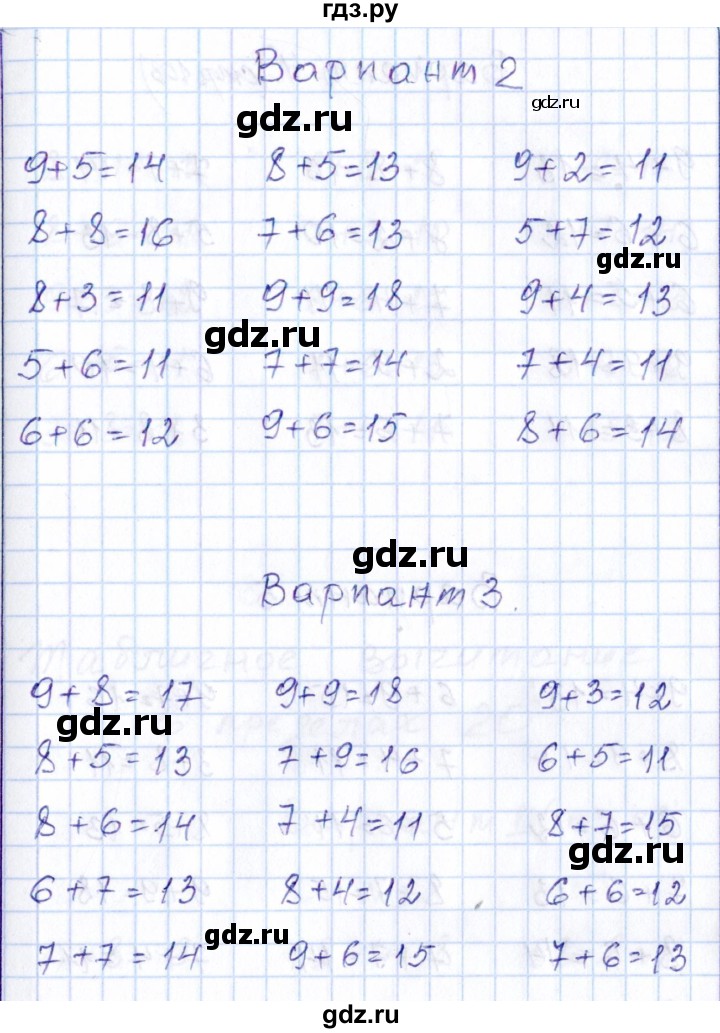 гдз.ру
Вариант 2
gdz.ru gdz.ru
9+5=14 8+5=13 9+2=11
8+8=16 7+6=13 5+7=12
gdz.ru
8+3=11 9+9=18 9+4=13
gdz.ru
5+6=11 7+7=14 7+4=11
6+6=12 9+6=15 8+6=14
gdz.ru
Вариант 3.
Табличное вычитание
9+8=17 9+9=18 9+3=12
gdz.ru
8+5=13 7+9=16 6+5=11
8+6=14 7+4=11 8+7=15
gdz.ru
6+7=13 8+4=12 6+6=12
gdz.ru
7+7=14 9+6=15 7+6=13
gdz.ru